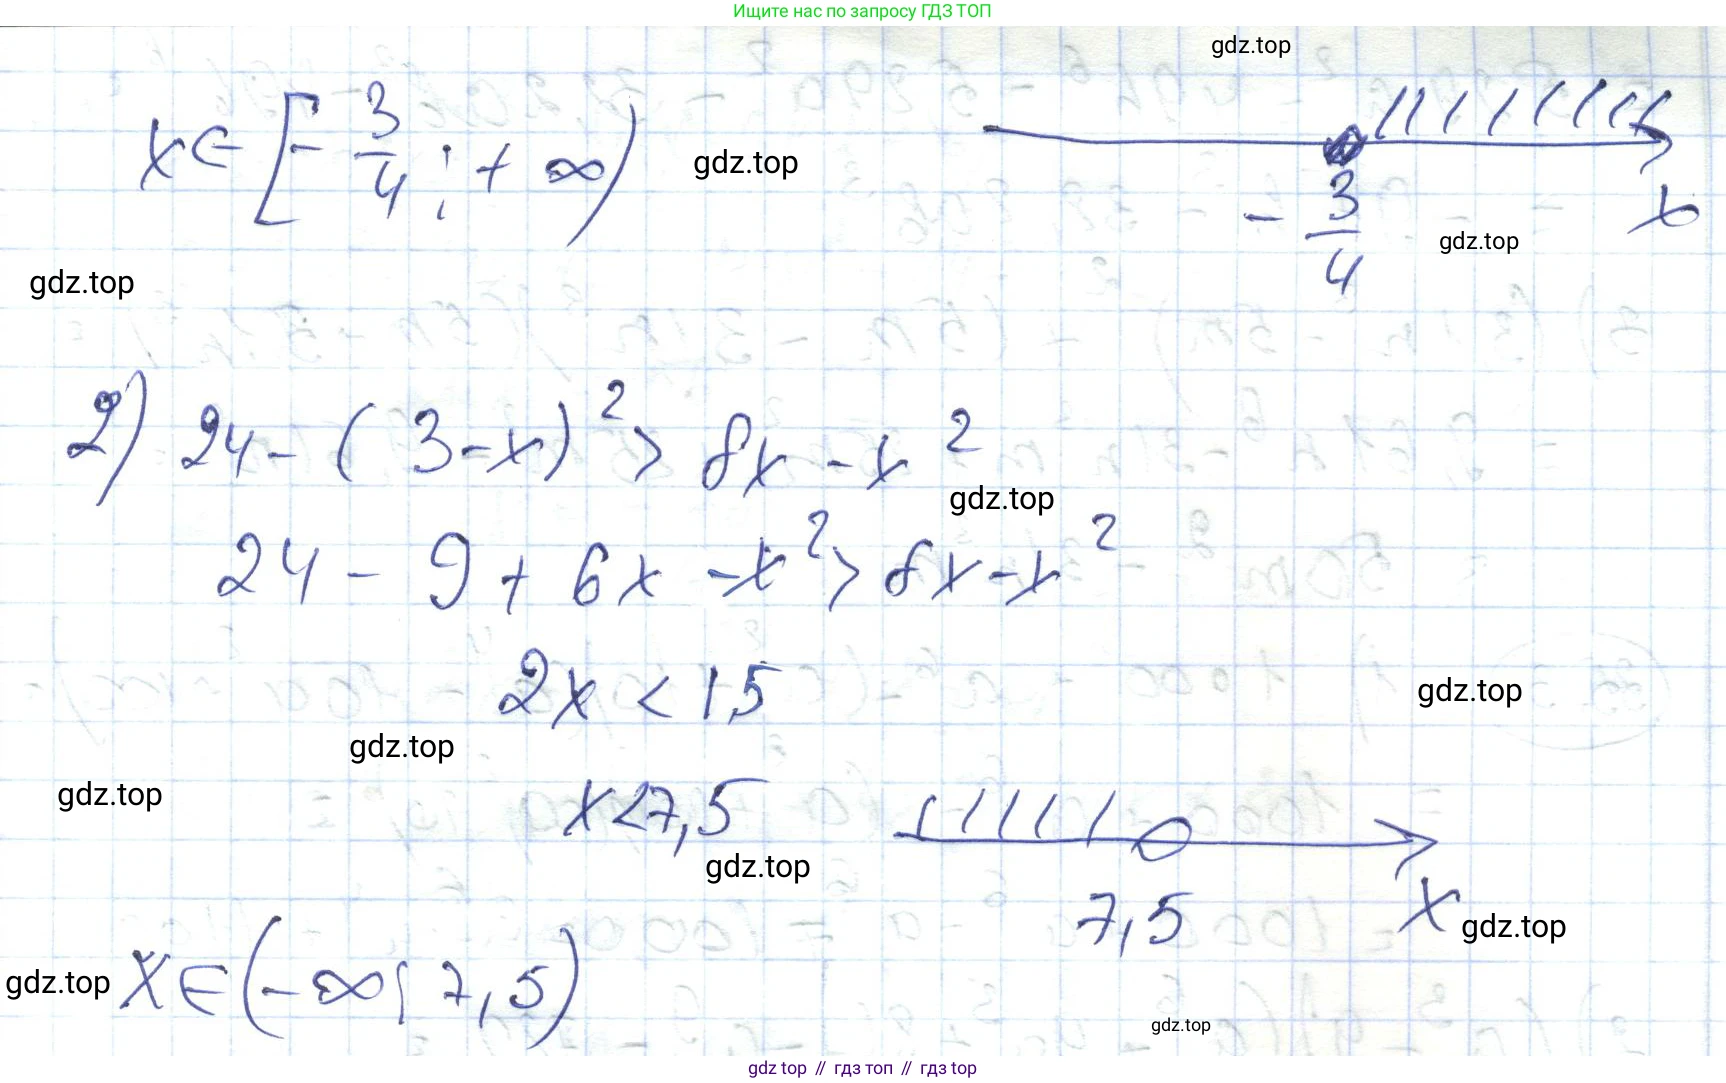 Ищите нас по запросу ГДЗ ТОП
gdz.top
x ∈ [-3/4; +∞)
gdz.top
-3/4
x
gdz.top
gdz.top
2) 24 - (3 - x)² > 8x - x²
gdz.top
24 - 9 + 6x - x² > 8x - x²
2x < 15
gdz.top
gdz.top
gdz.top
x < 7,5
gdz.top
7,5
x
gdz.top
gdz.top
x ∈ (-∞; 7,5)
gdz.top
gdz top // гдз топ // гдз top